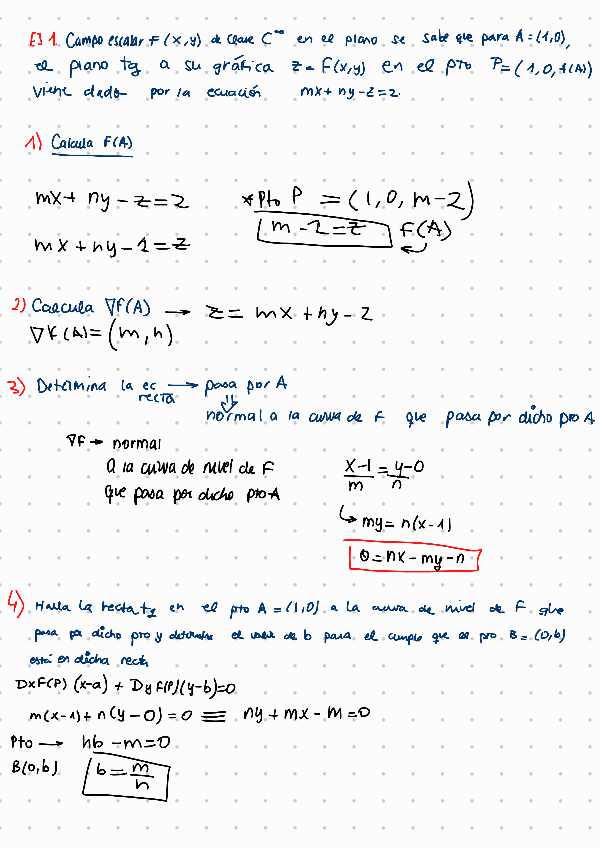 EJ 1. Campo escalar F(x,y) de clase C^∞ en el plano se sabe que para A=(1,0),
el plano tg a su gráfica z=F(x,y) en el pto P=(1,0,f(A))
viene dado por la ecuación mx+ny-z=2.
1) Calcula F(A)
mx+ny-z=2 *Pto P = (1,0,m-2)
mx+ny-2=z m-2=z F(A)
2) Calcula ∇F(A) → z= mx+ny-2
∇F(A)=(m,n)
3) Determina la ec → pasa por A
recta ⇓
normal a la curva de F que pasa por dicho pto A
∇F → normal
a la curva de nivel de F
que pasa por dicho pto A
x-1/m = y-0/n
↳ my=n(x-1)
0=nx-my-n
4) Halla la recta tg en el pto A=(1,0) a la curva de nivel de F que
pasa por dicho pto y determina el valor de b para el cumple que el pto B=(0,b)
está en dicha recta
DxF(P)(x-a)+DyF(P)(y-b)=0
m(x-1)+n(y-0)=0 ≡ ny+mx-m=0
Pto → nb-m=0
B(0,b) b=m/n